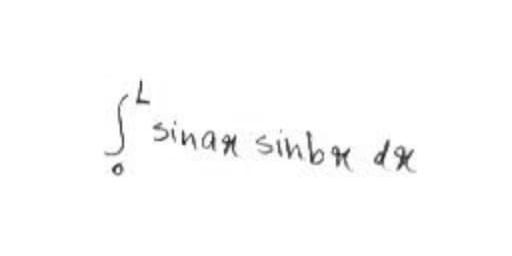 ∫₀ᴸ sinax sinbx dx